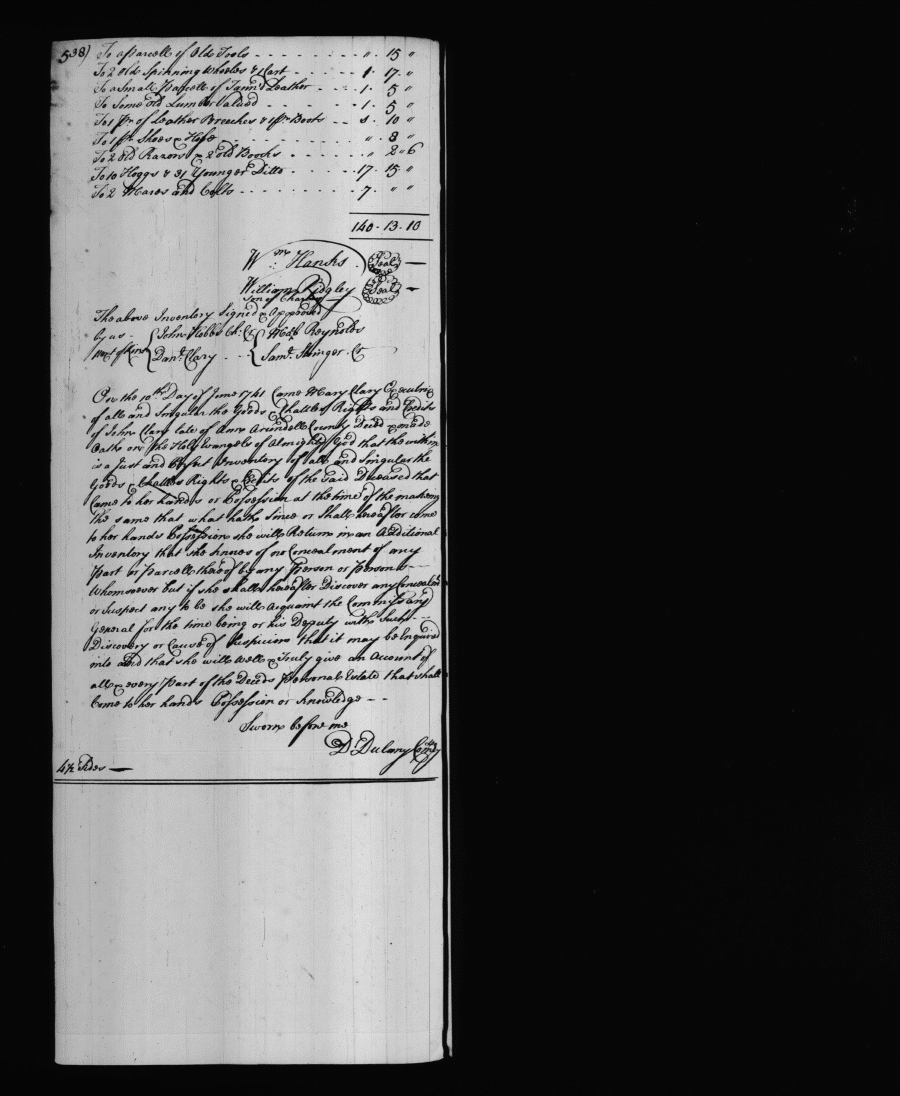 538) To a Parcell of Old Tools - - - " 15 "
To 2 Old Spinning Wheeles & 1 Cart - - - 1 . 17 . "
To a Small Parcell of Tann'd Leather - - - 1 . 5 "
To Some old Lumber Valued - - - 1 . 5 "
To 1 pr. of Leather Breeches & 1 pr. Boots - - 10 "
To 1 pr. Shoes & Hose - - - " 8 "
To 2 old Razors & 2 old Books - - - " 2 " 6
To 10 Hoggs & 31 Younger Ditto - - - 17 . 15 "
To 2 Mares and Colts - - - 7 . " "
140 . 13 . 10
Wm. Hanks (Seal)
William Ridgley (Seal)
Son of Charles
The above Inventory Signed & Approved
by us - { John Hobbs { Reynolds
Next of Kin { Danl. Clary - - - { Saml. Stringer. Cr.
On the 10th Day of June 1741 Came Mary Clary Executrix
of all and Singular the Goods Chattles Rights and Credits
of John Clary late of Ann Arundell County Decd. & made
Oath on the Holy Evangels of Almighty God that the within
is a Just and Perfect Inventory of all and Singular the
Goods Chattles Rights & Credits of the said Deceased that
Came to her hands or Possession at the time of the making
the same that what hath Since or Shall hereafter come
to her hands Possession she will Return in an Additional
Inventory that she knows of no Concealment of any
Part or Parcell thereof by any Person or Persons
Whomsoever but if she shall hereafter Discover any Concealmt.
or Suspect any to be she will Acquaint the Commissary
General for the time being or his Deputy with Such - -
Discovery or Cause of Suspicion that it may be Enquired
into and that she will Well & Truly give an Account of
all & every Part of the Decds. Personal Estate that shall
Come to her hands Possession or knowledge - -
Sworn before me
D Dulany Comry
4½ Sides -